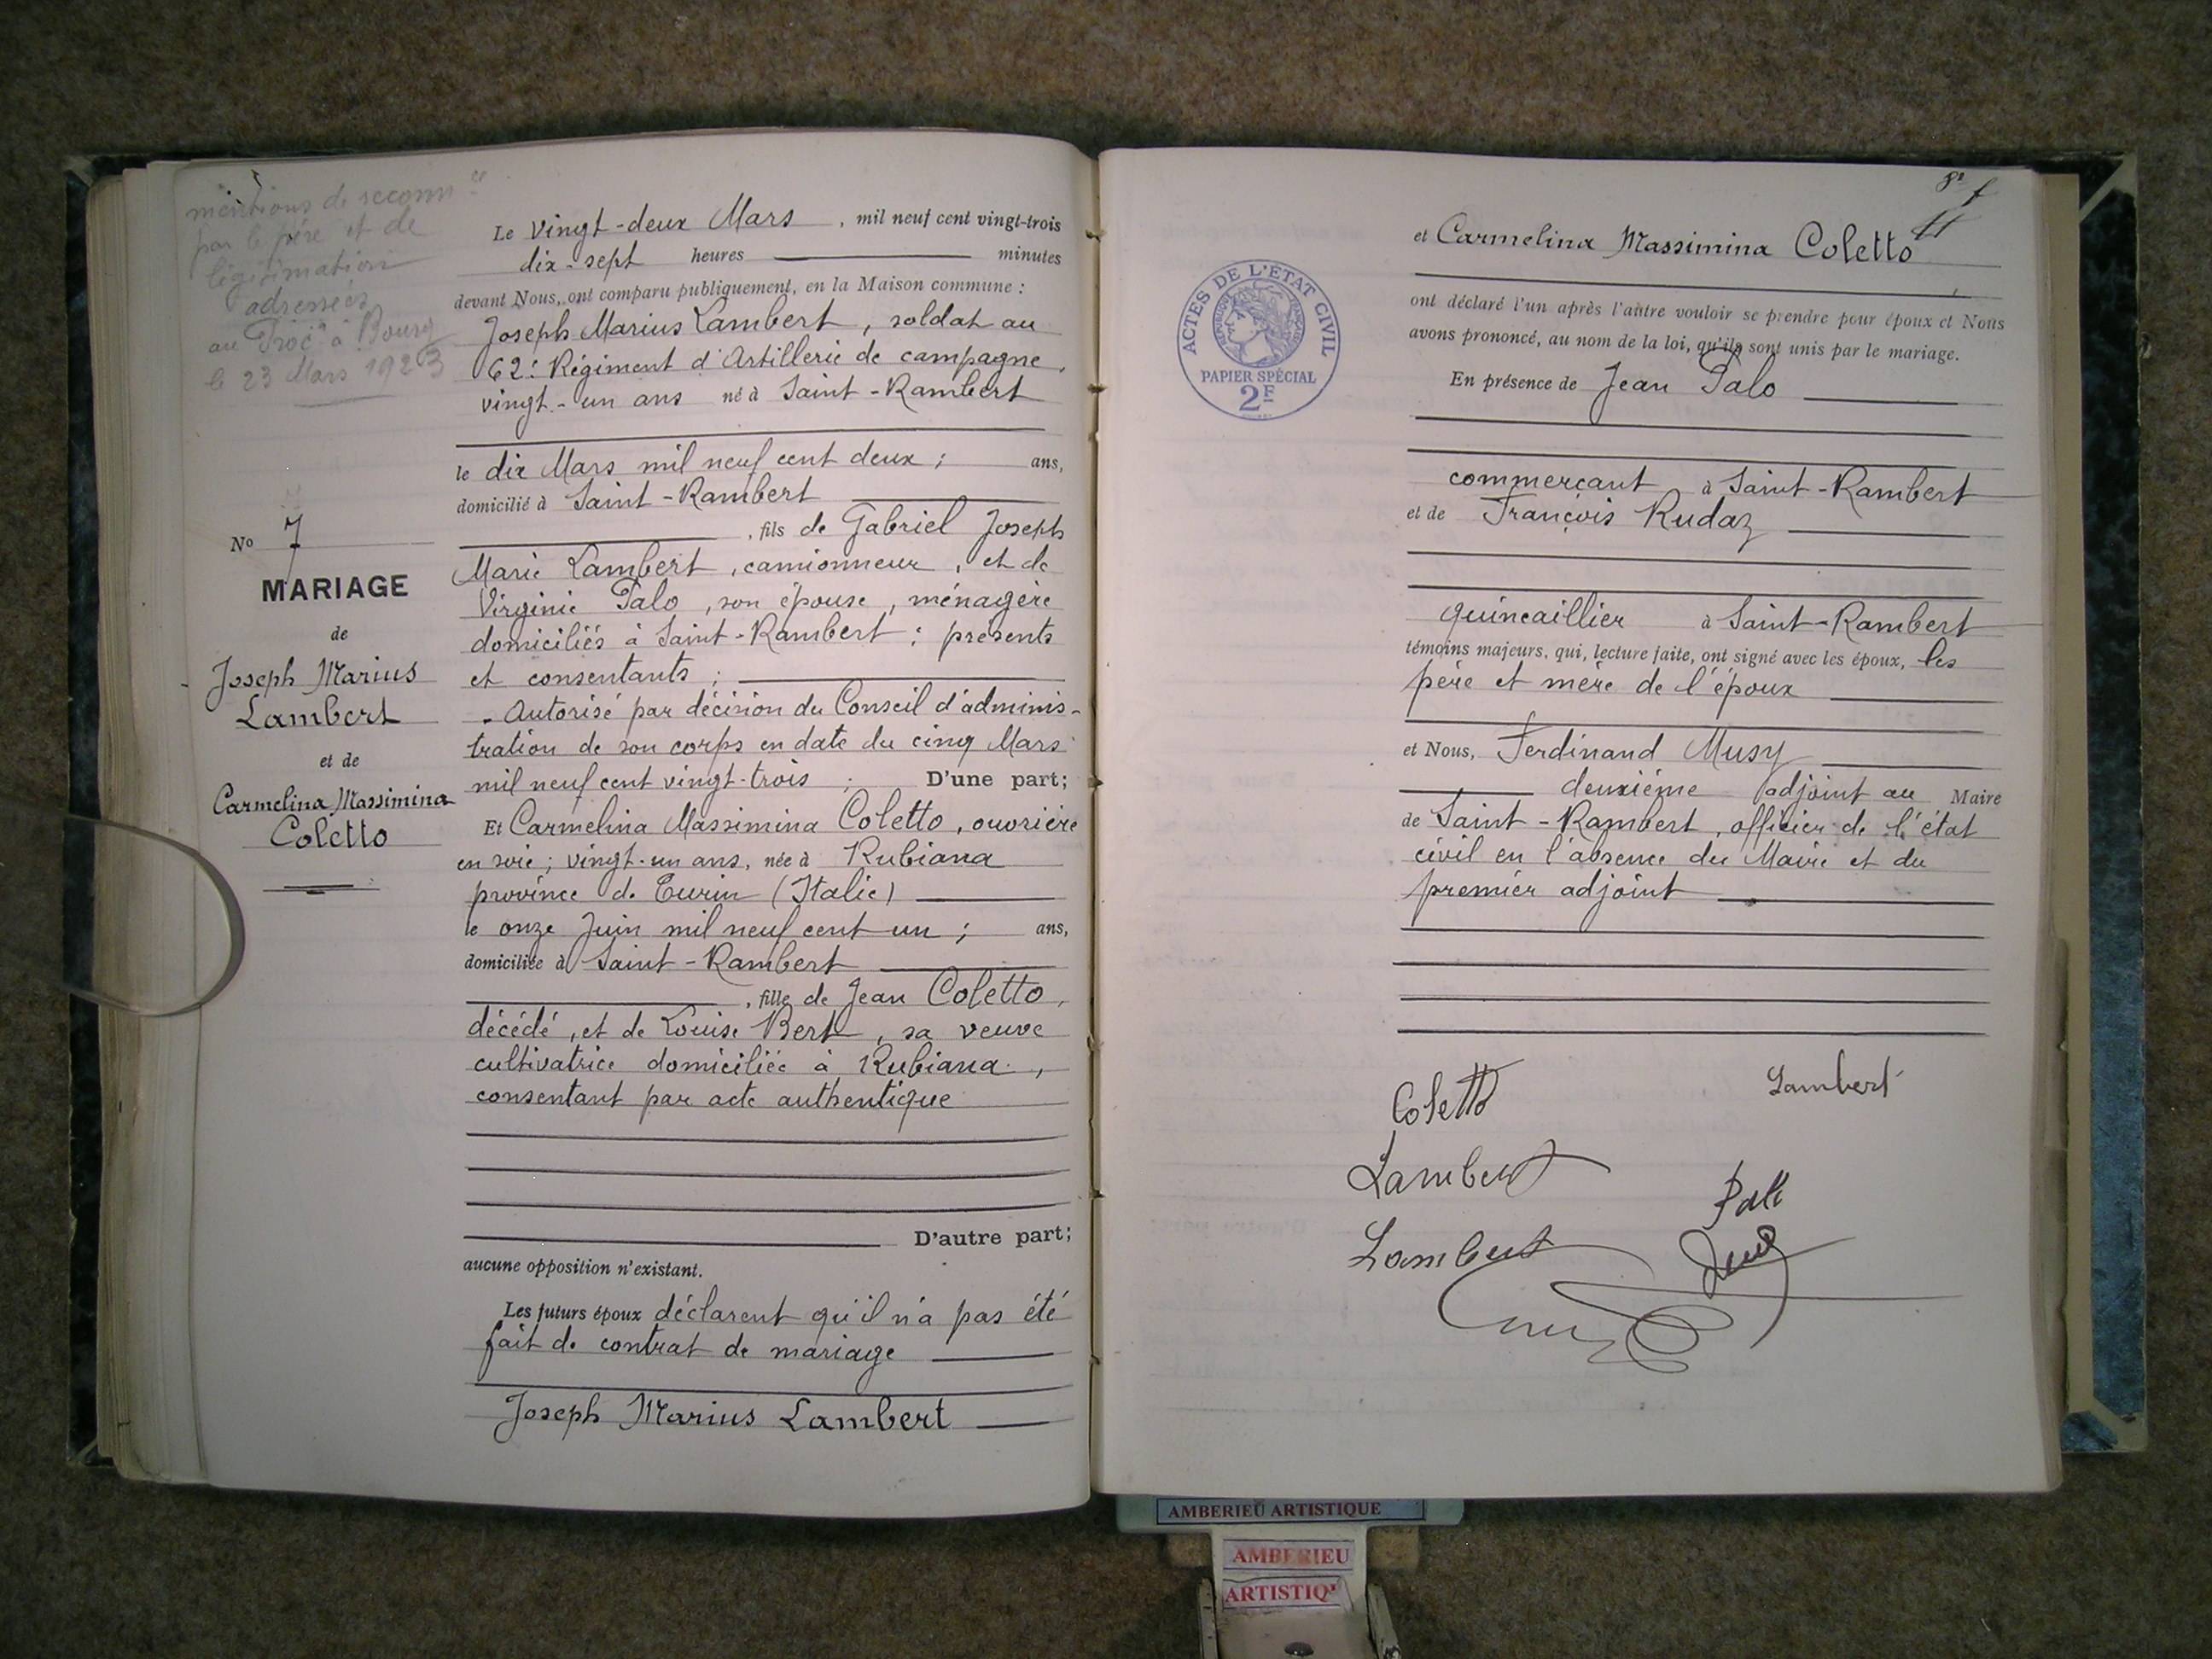 mentions de reconn ce
par le père et de
légitimation
adressées
au Proc à Bourg
le 23 Mars 1923
No 7
MARIAGE
de
Joseph Marius
Lambert
et de
Carmelina Massimina
Coletto
Le vingt-deux Mars, mil neuf cent vingt-trois
dix-sept heures minutes
devant Nous, ont comparu publiquement, en la Maison commune :
Joseph Marius Lambert, soldat au
62e Régiment d'Artillerie de campagne,
vingt-un ans né à Saint-Rambert
le dix Mars mil neuf cent deux ; ans,
domicilié à Saint-Rambert
, fils de Gabriel Joseph
Marie Lambert, camionneur, et de
Virginie Palo, son épouse, ménagère
domiciliés à Saint-Rambert ; présents
et consentants ;
- Autorisé par décision du Conseil d'adminis-
tration de son corps en date du cinq Mars
mil neuf cent vingt-trois ; D'une part;
Et Carmelina Massimina Coletto, ouvrière
en soie ; vingt-un ans, née à Rubiana
province de Turin (Italie)
le onze Juin mil neuf cent un ; ans,
domiciliée à Saint-Rambert
, fille de Jean Coletto,
décédé, et de Louise Bert, sa veuve
cultivatrice domiciliée à Rubiana,
consentant par acte authentique
D'autre part;
aucune opposition n'existant.
Les futurs époux déclarent qu'il n'a pas été
fait de contrat de mariage
Joseph Marius Lambert
ACTES DE L'ETAT CIVIL
REPUBLIQUE FRANÇAISE
PAPIER SPÉCIAL
2F
8e f
et Carmelina Massimina Coletto
ont déclaré l'un après l'autre vouloir se prendre pour époux et Nous
avons prononcé, au nom de la loi, qu'ils sont unis par le mariage.
En présence de Jean Palo
commerçant à Saint-Rambert
et de François Rudaz
quincaillier à Saint-Rambert
témoins majeurs, qui, lecture faite, ont signé avec les époux, les
père et mère de l'époux
et Nous, Ferdinand Musy
deuxième adjoint au Maire
de Saint-Rambert, officier de l'état
civil en l'absence du Maire et du
premier adjoint
Coletto
Lambert
Lambert
Palo
Lambert
AMBERIEU ARTISTIQUE
AMBERIEU
ARTISTIQ